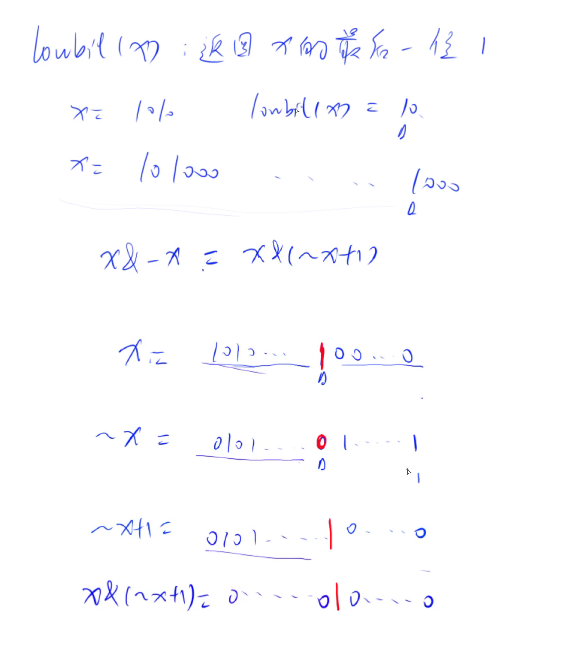 lowbit(x) : 返回 x的最后一位 1
x= 1010 lowbit(x) = 10
x= 101000 ..... 1000
x&-x = x&(~x+1)
x= 1010... 100...0
~x = 0101.... 01.....1
1
~x+1= 0101.....10....0
x&(~x+1)= 0.....010....0